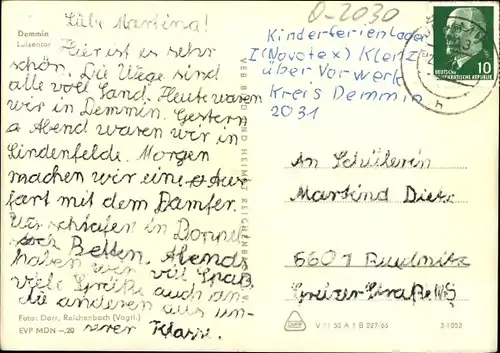 Demmin
Luisentor
Liebe Martina!
Hier ist es sehr
schön. Die Wege sind
alle voll Sand. Heute waren
wir in Demmin. Gestern
Abend waren wir in
Lindenfelde. Morgen
machen wir eine Aus
fart mit dem Dampfer.
Wir schlafen in Doppel
Betten. Abends
haben wir viel Spaß
viele Grüße auch an
die anderen aus un-
serer Klasse.
Foto: Darr, Reichenbach (Vogtl.)
EVP MDN –,20
VEB BILD UND HEIMAT REICHENBACH
O-2030
Kinderferienlager
(Novotex)
über Vorwerk
Kreis Demmin
2031
DEUTSCHE
DEMOKRATISCHE REPUBLIK
10
An Schülerin
6601
Greizer Straße
V 11 50 A 1 B 227/65
3 1052